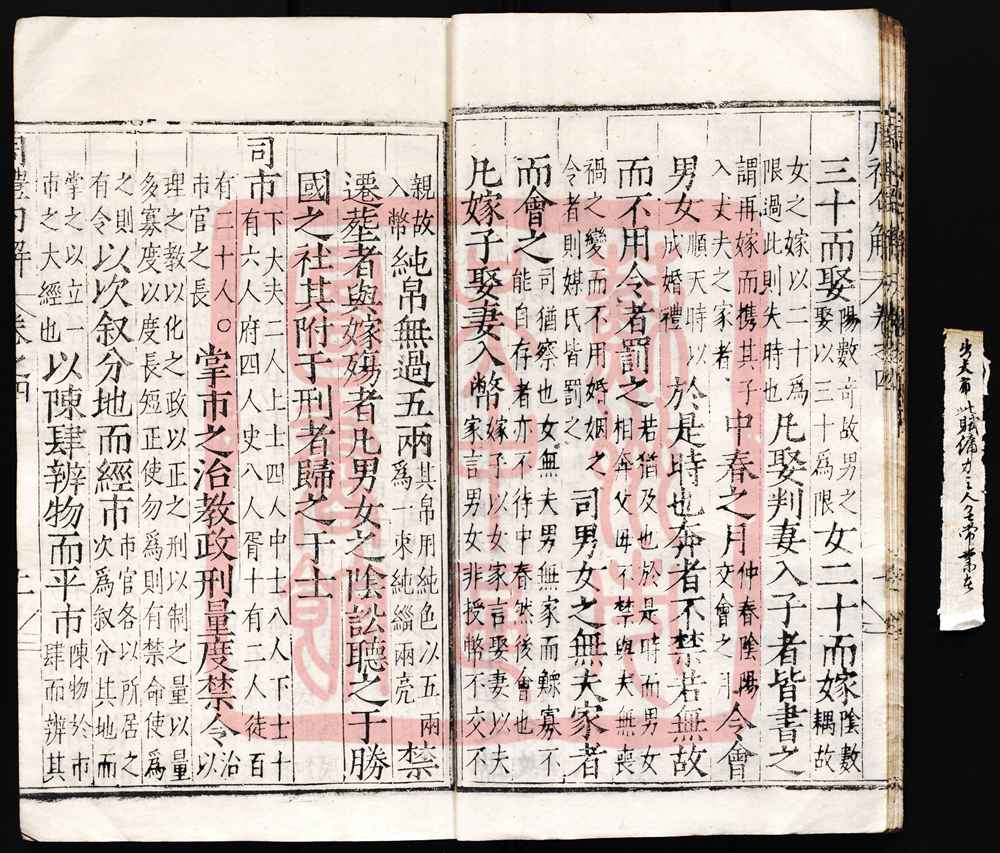 三十而娶陽數奇故男之娶以三十爲限女二十而嫁陰數耦故
女之嫁以二十爲限過此則失時也凡娶判妻入子者皆書之
謂再嫁而携其子入丈夫之家者中春之月仲春陰陽交會之月令會
男女順天時以成婚禮於是時也奔者不禁若無故
而不用令者罰之若猶及也於是時而男女相奔父母不禁與夫無喪
禍之變而不用婚姻之令者則媒氏皆罰之司男女之無夫家者
而會之司猶察也女無夫男無家而鰥寡不能自存者亦不待中春然後會也
凡嫁子娶妻入幣嫁子以女家言娶妻以夫家言男女非授幣不交不
親故入幣純帛無過五兩其帛用純色以五兩爲一束純緇兩亮禁
遷葬者與嫁殤者凡男女之陰訟聽之于勝
國之社其附于刑者歸之于士
司市下大夫二人上士四人中士八人下士十有六人府四人史八人胥十有二人徒百
有二十人○市官之長掌市之治教政刑量度禁令治以
理之教以化之政以正之刑以制之量以量多寡度以度長短正使勿爲則有禁命使爲
之則有令以次叙分地而經市市官各以所居之次爲叙分其地而
掌之以立一市之大經也以陳肆辨物而平市陳物於市肆而辨其
周禮句解 卷之四